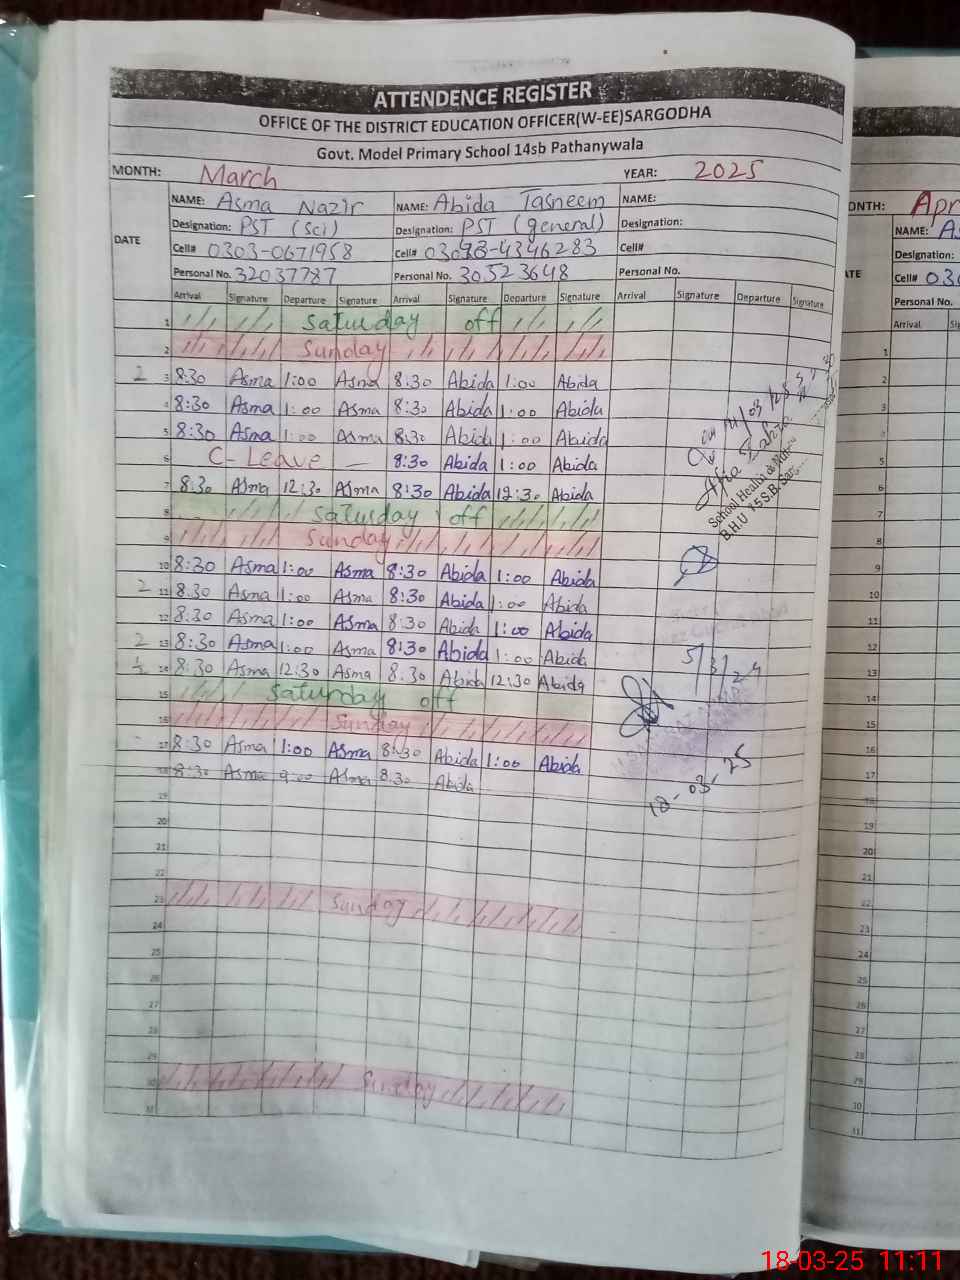 ATTENDENCE REGISTER
OFFICE OF THE DISTRICT EDUCATION OFFICER(W-EE)SARGODHA
Govt. Model Primary School 14sb Pathanywala
MONTH: March YEAR: 2025
NAME: Asma Nazir NAME: Abida Tasneem NAME:
Designation: PST (sci) Designation: PST (general) Designation:
DATE
Cell# 0303-0671958 Cell# Cell#
Personal No. 32037787 Personal No. 30523648 Personal No.
Arrival Signature Departure Signature Arrival Signature Departure Signature Arrival Signature Departure Signature
1 Saturday off
2 Sunday
2 3 8:30 Asma 1:00 Asma 8:30 Abida 1:00 Abida
4 8:30 Asma 1:00 Asma 8:30 Abida 1:00 Abida
5 8:30 Asma 1:00 Asma 8:30 Abida 1:00 Abida
6 C-Leave — 8:30 Abida 1:00 Abida
7 8:30 Asma 12:30 Asma 8:30 Abida 12:30 Abida
8 Saturday off
9 Sunday
10 8:30 Asma 1:00 Asma 8:30 Abida 1:00 Abida
2 11 8:30 Asma 1:00 Asma 8:30 Abida 1:00 Abida
12 8:30 Asma 1:00 Asma 8:30 Abida 1:00 Abida
2 13 8:30 Asma 1:00 Asma 8:30 Abida 1:00 Abida
14 8:30 Asma 12:30 Asma 8:30 Abida 12:30 Abida
15 Saturday off
16 Sunday
17 8:30 Asma 1:00 Asma 8:30 Abida 1:00 Abida
18 8:30 Asma 9:00 Asma 8:30 Abida
19
20
21
22
23 Sunday
24
25
26
27
28
29
30 Sunday
31
School Health & Nut
B.H.U 15 S.B. Sar
5/3/2
18-03-25
ONTH: Apr
NAME: As
Designation:
ATE
Cell# 030
Personal No.
Arrival
1
2
3
4
5
6
7
8
9
10
11
12
13
14
15
16
17
18
19
20
21
22
23
24
25
26
27
28
29
30
31
18-03-25 11:11